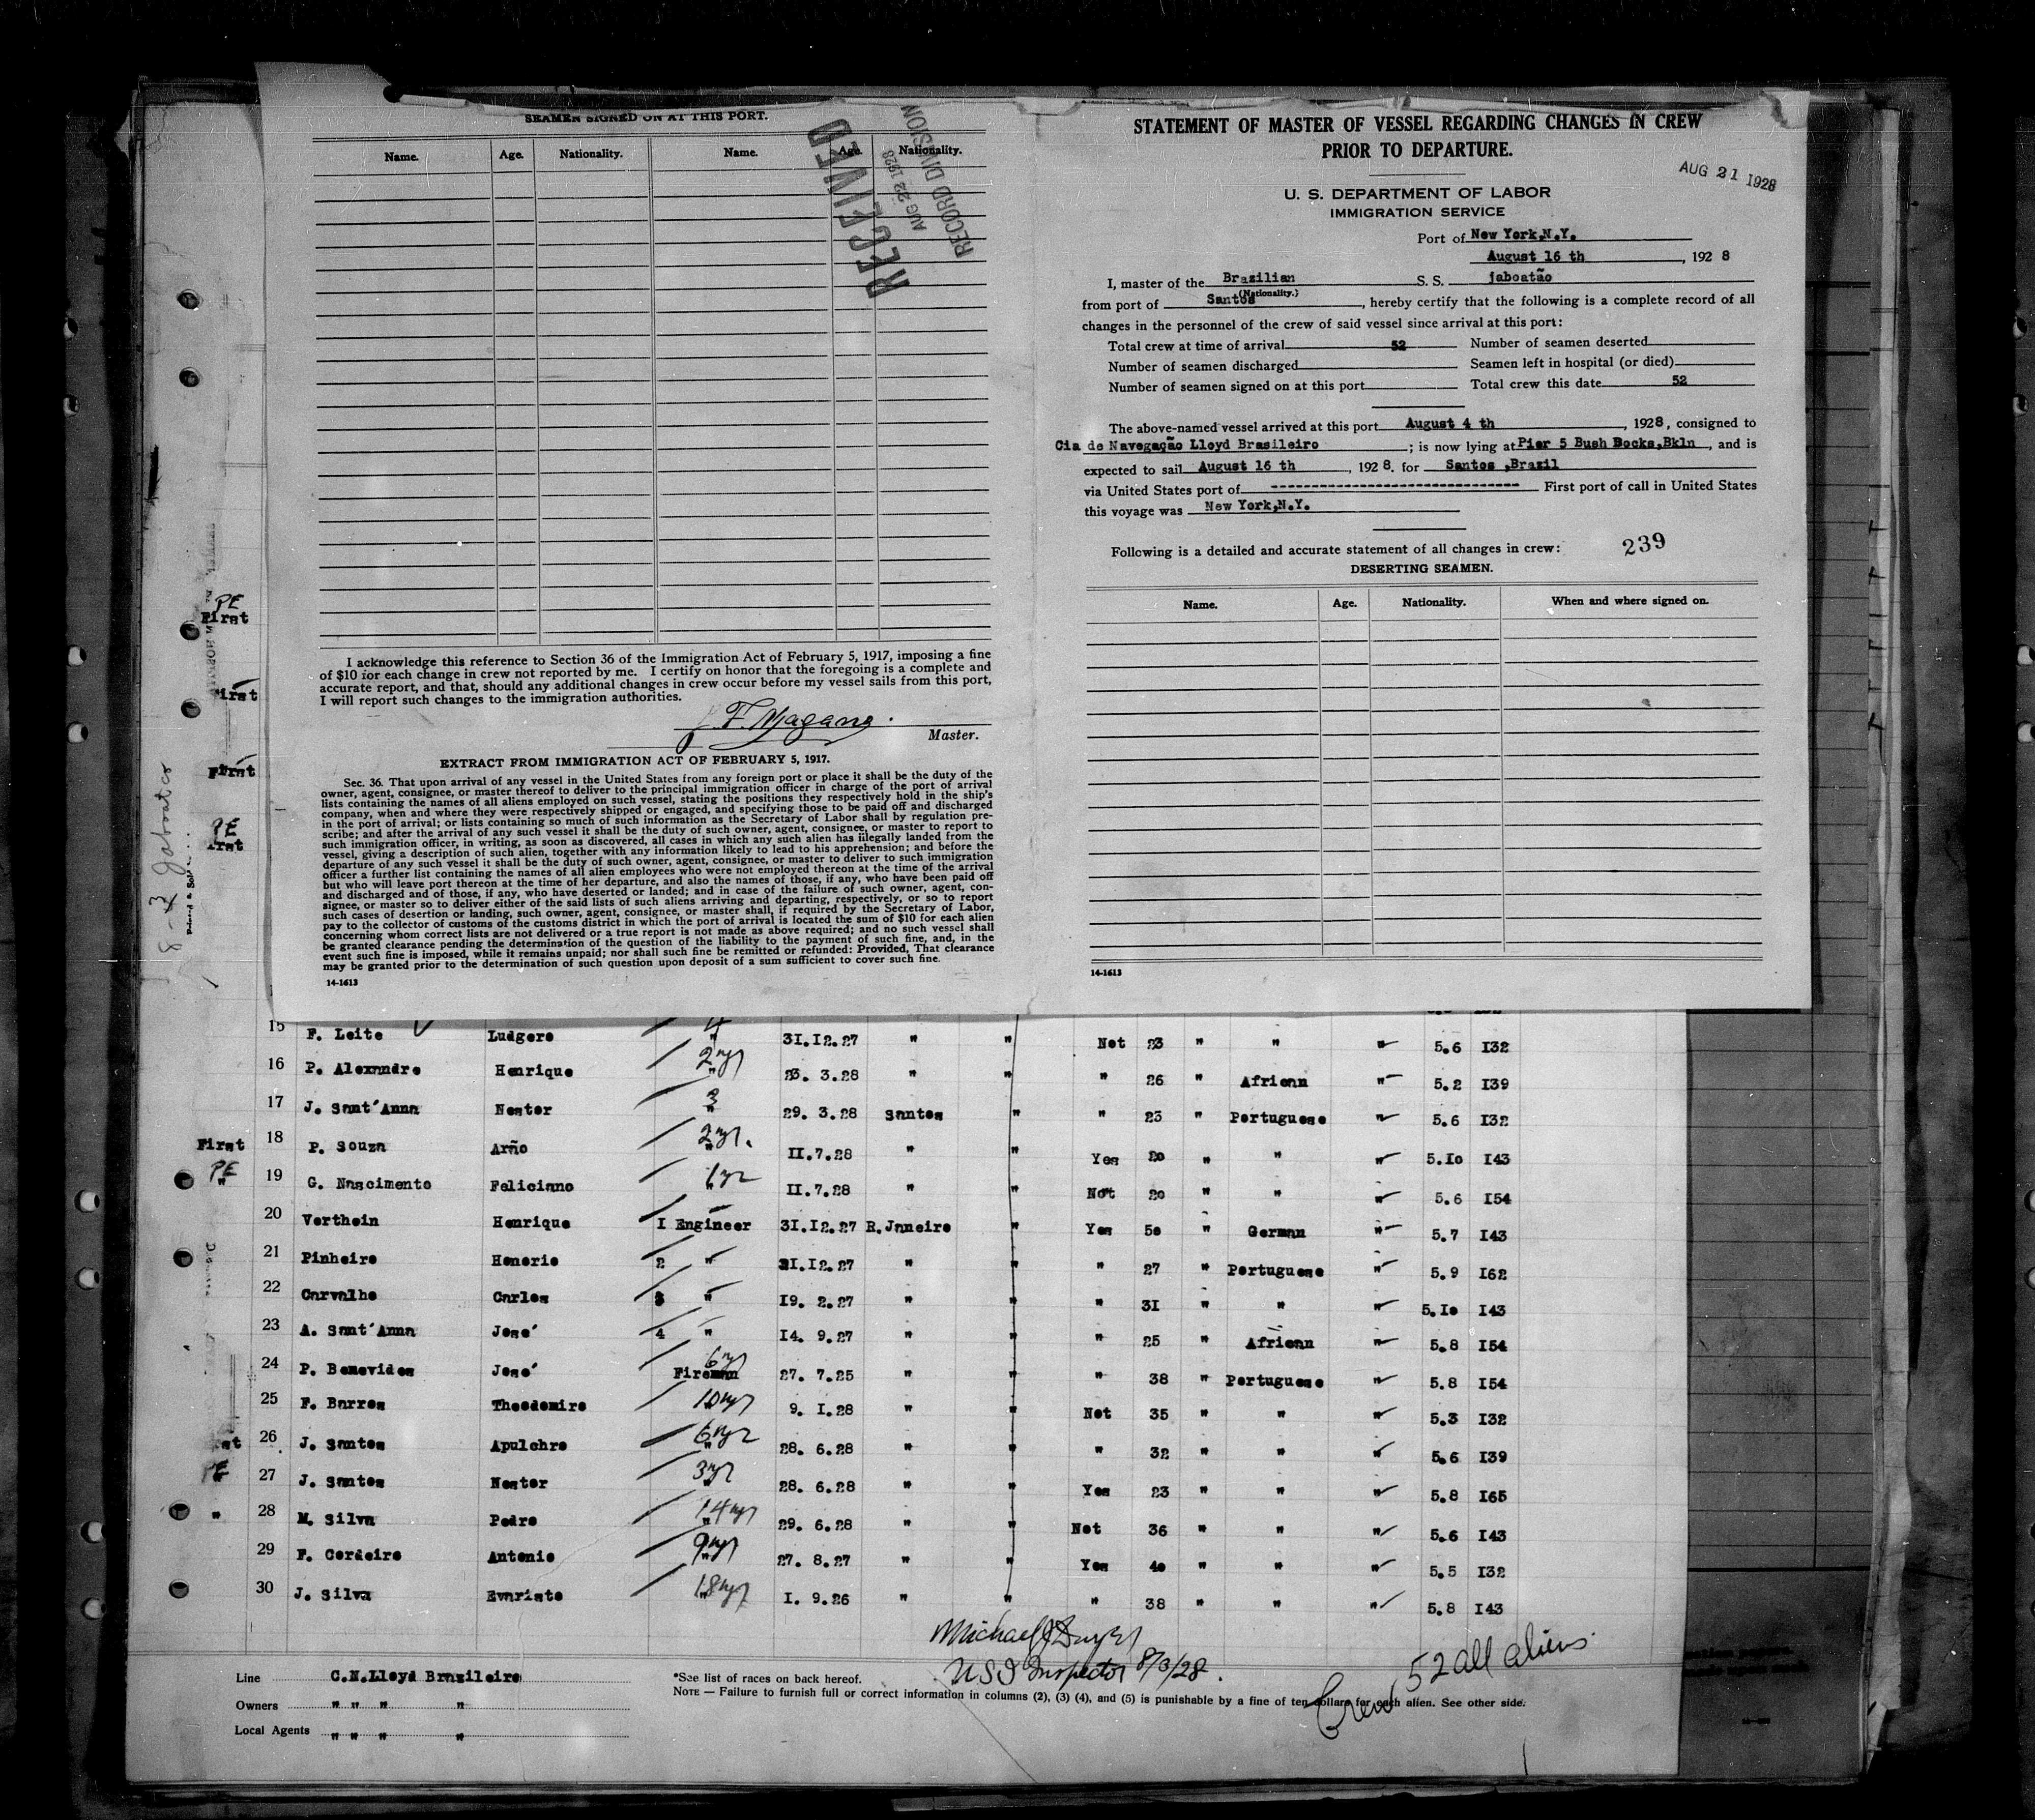 SEAMEN SIGNED ON AT THIS PORT.
Name. Age. Nationality. Name. Age. Nationality.
RECEIVED
AUG 22 1928
RECORD DIVISION
I acknowledge this reference to Section 36 of the Immigration Act of February 5, 1917, imposing a fine
of $10 for each change in crew not reported by me. I certify on honor that the foregoing is a complete and
accurate report, and that, should any additional changes in crew occur before my vessel sails from this port,
I will report such changes to the immigration authorities.
Master.
EXTRACT FROM IMMIGRATION ACT OF FEBRUARY 5, 1917.
Sec. 36. That upon arrival of any vessel in the United States from any foreign port or place it shall be the duty of the
owner, agent, consignee, or master thereof to deliver to the principal immigration officer in charge of the port of arrival
lists containing the names of all aliens employed on such vessel, stating the positions they respectively hold in the ship's
company, when and where they were respectively shipped or engaged, and specifying those to be paid off and discharged
in the port of arrival; or lists containing so much of such information as the Secretary of Labor shall by regulation pre-
scribe; and after the arrival of any such vessel it shall be the duty of such owner, agent, consignee, or master to report to
such immigration officer, in writing, as soon as discovered, all cases in which any such alien has illegally landed from the
vessel, giving a description of such alien, together with any information likely to lead to his apprehension; and before the
departure of any such vessel it shall be the duty of such owner, agent, consignee, or master to deliver to such immigration
officer a further list containing the names of all alien employees who were not employed thereon at the time of the arrival
but who will leave port thereon at the time of her departure, and also the names of those, if any, who have been paid off
and discharged and of those, if any, who have deserted or landed; and in case of the failure of such owner, agent, con-
signee, or master so to deliver either of the said lists of such aliens arriving and departing, respectively, or so to report
such cases of desertion or landing, such owner, agent, consignee, or master shall, if required by the Secretary of Labor,
pay to the collector of customs of the customs district in which the port of arrival is located the sum of $10 for each alien
concerning whom correct lists are not delivered or a true report is not made as above required; and no such vessel shall
be granted clearance pending the determination of the question of the liability to the payment of such fine, and, in the
event such fine is imposed, while it remains unpaid; nor shall such fine be remitted or refunded: Provided, That clearance
may be granted prior to the determination of such question upon deposit of a sum sufficient to cover such fine.
14-1613
STATEMENT OF MASTER OF VESSEL REGARDING CHANGES IN CREW
PRIOR TO DEPARTURE.
AUG 21 1928
U. S. DEPARTMENT OF LABOR
IMMIGRATION SERVICE
Port of New York,N.Y.
August 16 th, 192 8
I, master of the Brazilian S. S. jaboatão
(Nationality.)
from port of Santos, hereby certify that the following is a complete record of all
changes in the personnel of the crew of said vessel since arrival at this port:
Total crew at time of arrival 52 Number of seamen deserted
Number of seamen discharged Seamen left in hospital (or died)
Number of seamen signed on at this port Total crew this date 52
The above-named vessel arrived at this port August 4 th, 1928, consigned to
Cia de Navegação Lloyd Brasileiro; is now lying at Pier 5 Bush Docks,Bkln, and is
expected to sail August 16 th, 192 8. for Santos ,Brazil
via United States port of ------------------------------ First port of call in United States
this voyage was New York,N.Y.
Following is a detailed and accurate statement of all changes in crew: 239
DESERTING SEAMEN.
Name. Age. Nationality. When and where signed on.
14-1613
PE
First
First
First
PE
15 F. Leite Ludgero 4 " 31.I2.27 " " Not 23 " " " 5.6 I32
16 P. Alexandre Henrique 2 yr " 23. 3.28 " " " 26 " African " 5.2 I39
17 J. Sant'Anna Nestor 3 " 29. 3.28 Santos " " 23 " Portuguese " 5.6 I32
First 18 P. Souza Arño 2 yr. " II.7.28 " " Yes 20 " " " 5.Io I43
PE " 19 G. Nascimento Feliciano 1 yr " II.7.28 " " Not 20 " " " 5.6 I54
20 Verthein Henrique I Engineer 31.I2.27 R.Janeiro " Yes 5o " German " 5.7 I43
21 Pinheiro Honorio 2 " 31.I2.27 " " " 27 " Portuguese " 5.9 I62
22 Carvalho Carlos 3 " I9. 2.27 " " " 3I " " " 5.Io I43
23 A. Sant'Anna José 4 " I4. 9.27 " " " 25 " African " 5.8 I54
24 P. Benevides José 6 yr Fireman 27. 7.25 " " " 38 " Portuguese " 5.8 I54
25 F. Barros Theodomiro 10 yr " 9. I.28 " " Not 35 " " " 5.3 I32
26 J. Santos Apulchro 6 yr " 28. 6.28 " " " 32 " " " 5.6 I39
PE 27 J. Santos Nestor 3 yr " 28. 6.28 " " Yes 23 " " " 5.8 I65
" 28 M. Silva Pedro 14 yr " 29. 6.28 " " Not 36 " " " 5.6 I43
29 F. Cordeiro Antonio 9 yr " 27. 8.27 " " Yes 4o " " " 5.5 I32
30 J. Silva Evaristo 18 yr " I. 9.26 " " " 38 " " " 5.8 I43
Michael J Dwyer
USI Inspector 8/3/28.
Crew 52 all aliens.
Line C.N.Lloyd Brazileiro
Owners " " " "
Local Agents " " " "
*See list of races on back hereof.
NOTE — Failure to furnish full or correct information in columns (2), (3) (4), and (5) is punishable by a fine of ten dollars for each alien. See other side.